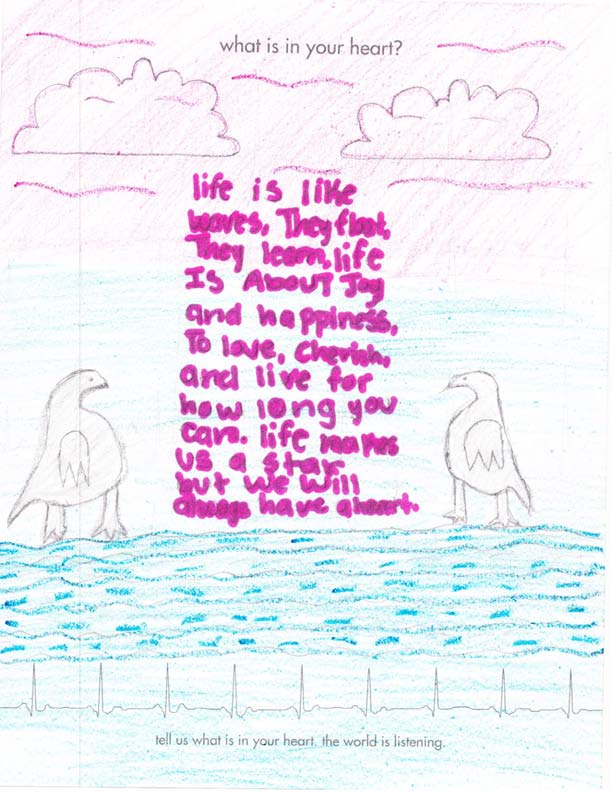 what is in your heart?
life is like
waves, They float,
They learn, life
Is About Joy
and happiness,
To love, cherish,
and live for
how long you
can. life makes
us a star
but we will
always have a heart.
tell us what is in your heart. the world is listening.